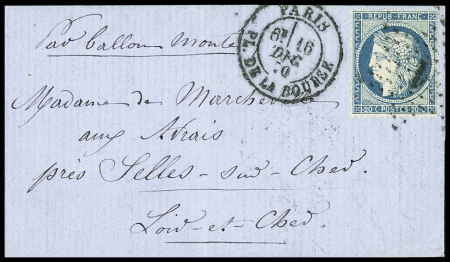 Par ballon Monté
PARIS
6E 16
DEC
70
PL. DE LA BOURSE
REPUB. FRANC.
20 C. POSTES 20 C.
1
Madame de Marcheval
aux Vrais
près Selles-sur-Cher
Loir-et-Cher.